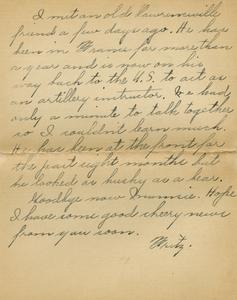 I met an old Lawrenceville
friend a few days ago. He has
been in France for more than
a year and is now on his
way back to the U.S. to act as
an artillery instructor. We had
only a minute to talk together
so I couldn't learn much.
He has been at the front for
the past eight months but
he looked as husky as a bear.
Goodbye now Dunnie. Hope
I have some good cheery news
from you soon.
Fritz.